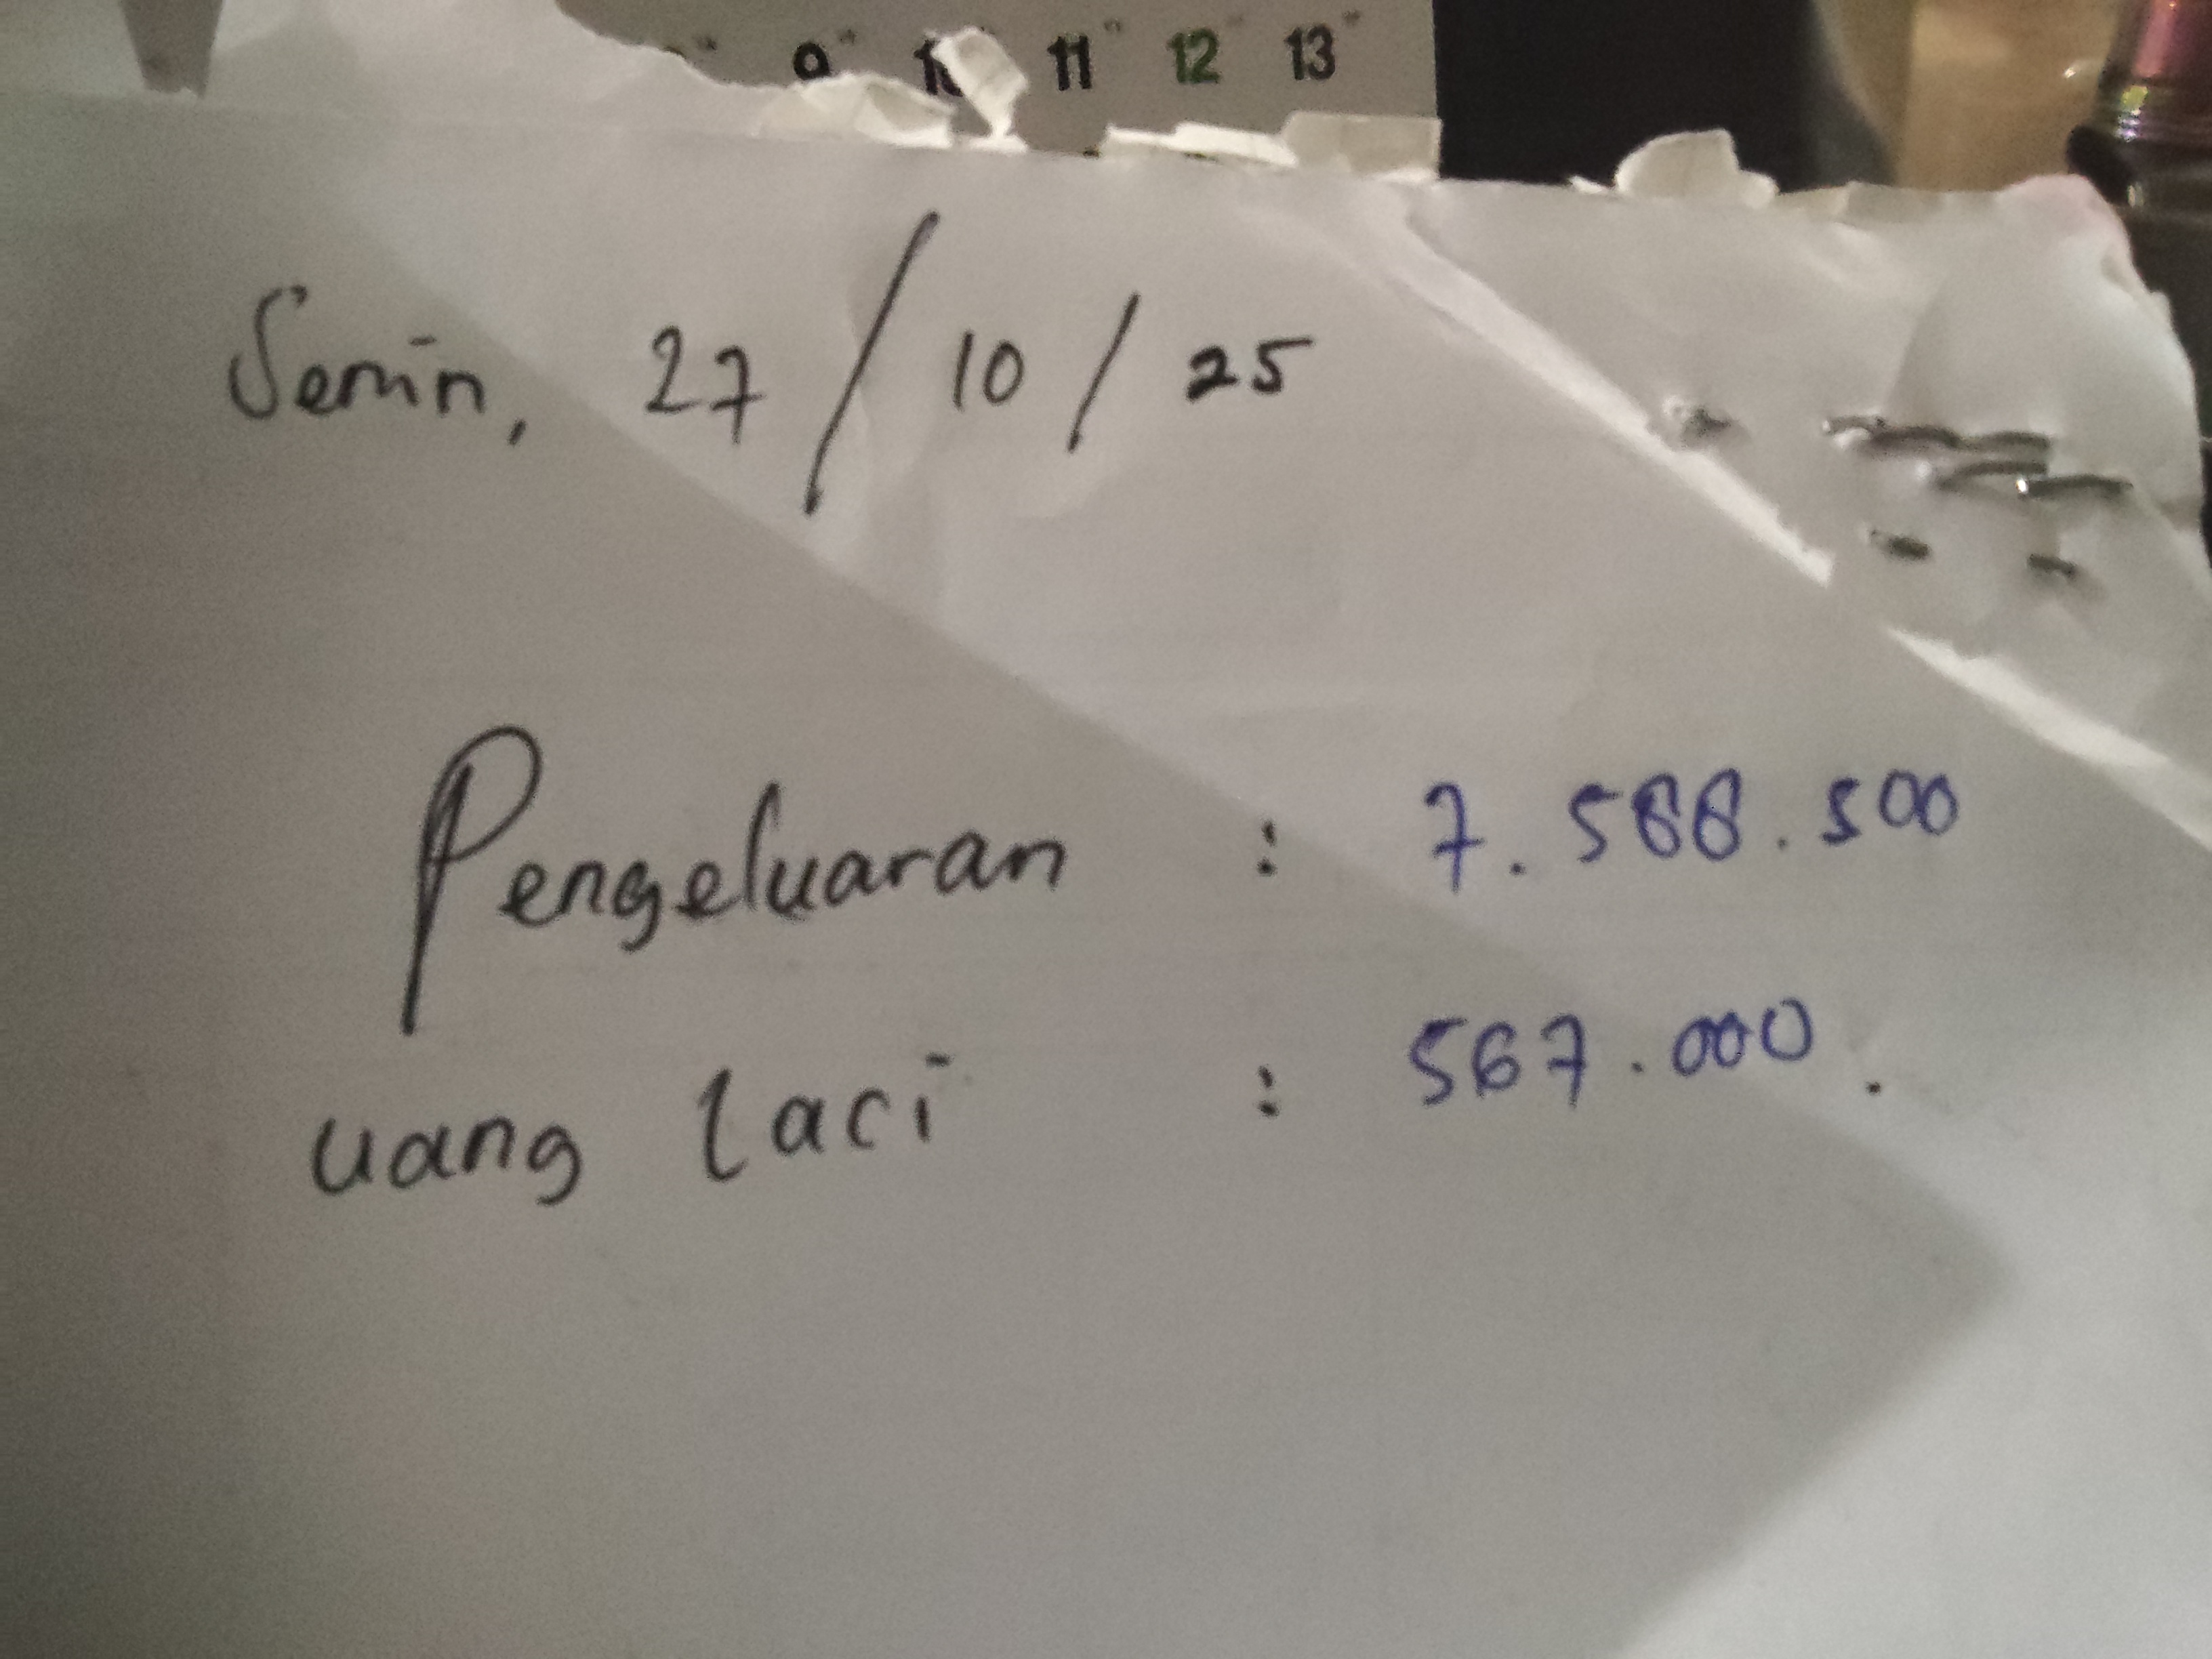 9 10 11 12 13
Senin, 27 / 10 / 25
Pengeluaran : 7.588.500
uang laci : 567.000.